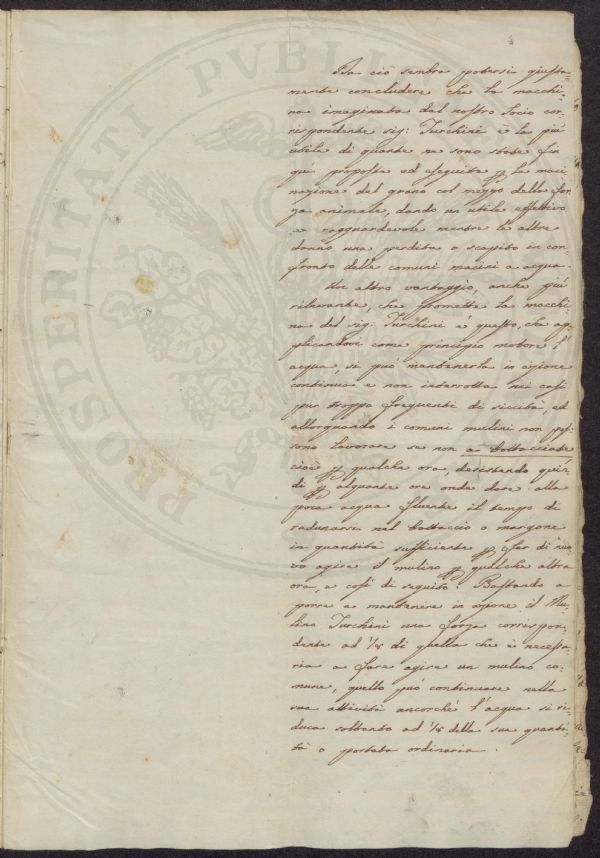 PROSPERITATI PVBLI
Da ciò sembra potersi giusta-
mente concludere che la macchi-
na imaginata dal nostro Socio cor-
rispondente sig: Turchini è la più
utile di quante ne sono state fin
qui proposte ed eseguite p la maci-
nazione del grano col mezzo della for-
za animale, dando un utile effettivo
e ragguardevole mentre le altre
danno una perdita o scapito in con-
fronto delle comuni macini a acqua.
Un altro vantaggio, anche più
rilevante, che promette la macchi-
na del sig: Turchini è questo, che ap-
plicandovi come principio motore l'
acqua, si può mantenerla in azione
continua e non interrotta nei casi
pur troppo frequenti di siccità, ed
allorquando i comuni mulini non pos-
sono lavorare se non a bottacciate
cioè p qualche ora, desistendo quin-
di p alquante ore onde dare alla
poca acqua fluente il tempo di
radunarsi nel bottaccio o margone
in quantità sufficiente p far di nuo-
vo agire il mulino p qualche altra
ora, e così di seguito: Bastando a
porre e mantenere in azione il Mu-
lino Turchini una forza corrispon-
dente ad 1/8 di quella che è necessa-
ria a fare agire un mulino co-
mune, quello può continuare nella
sua attività ancorchè l'acqua si ri-
duca soltanto ad 1/8 della sua quanti-
tà o portata ordinaria.